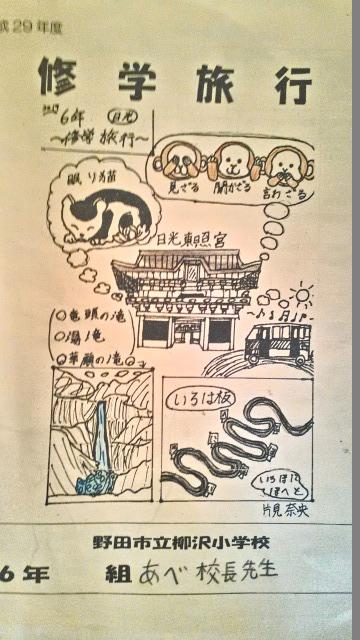 成29年度
修学旅行
6年 日光
〜修学旅行〜
見ざる 聞かざる 言わざる
眠り猫
日光東照宮
○竜頭の滝
○湯滝
○華厳の滝
いろは坂
いろはに
ほへと
片見奈央
野田市立柳沢小学校
6年 組 あべ校長先生